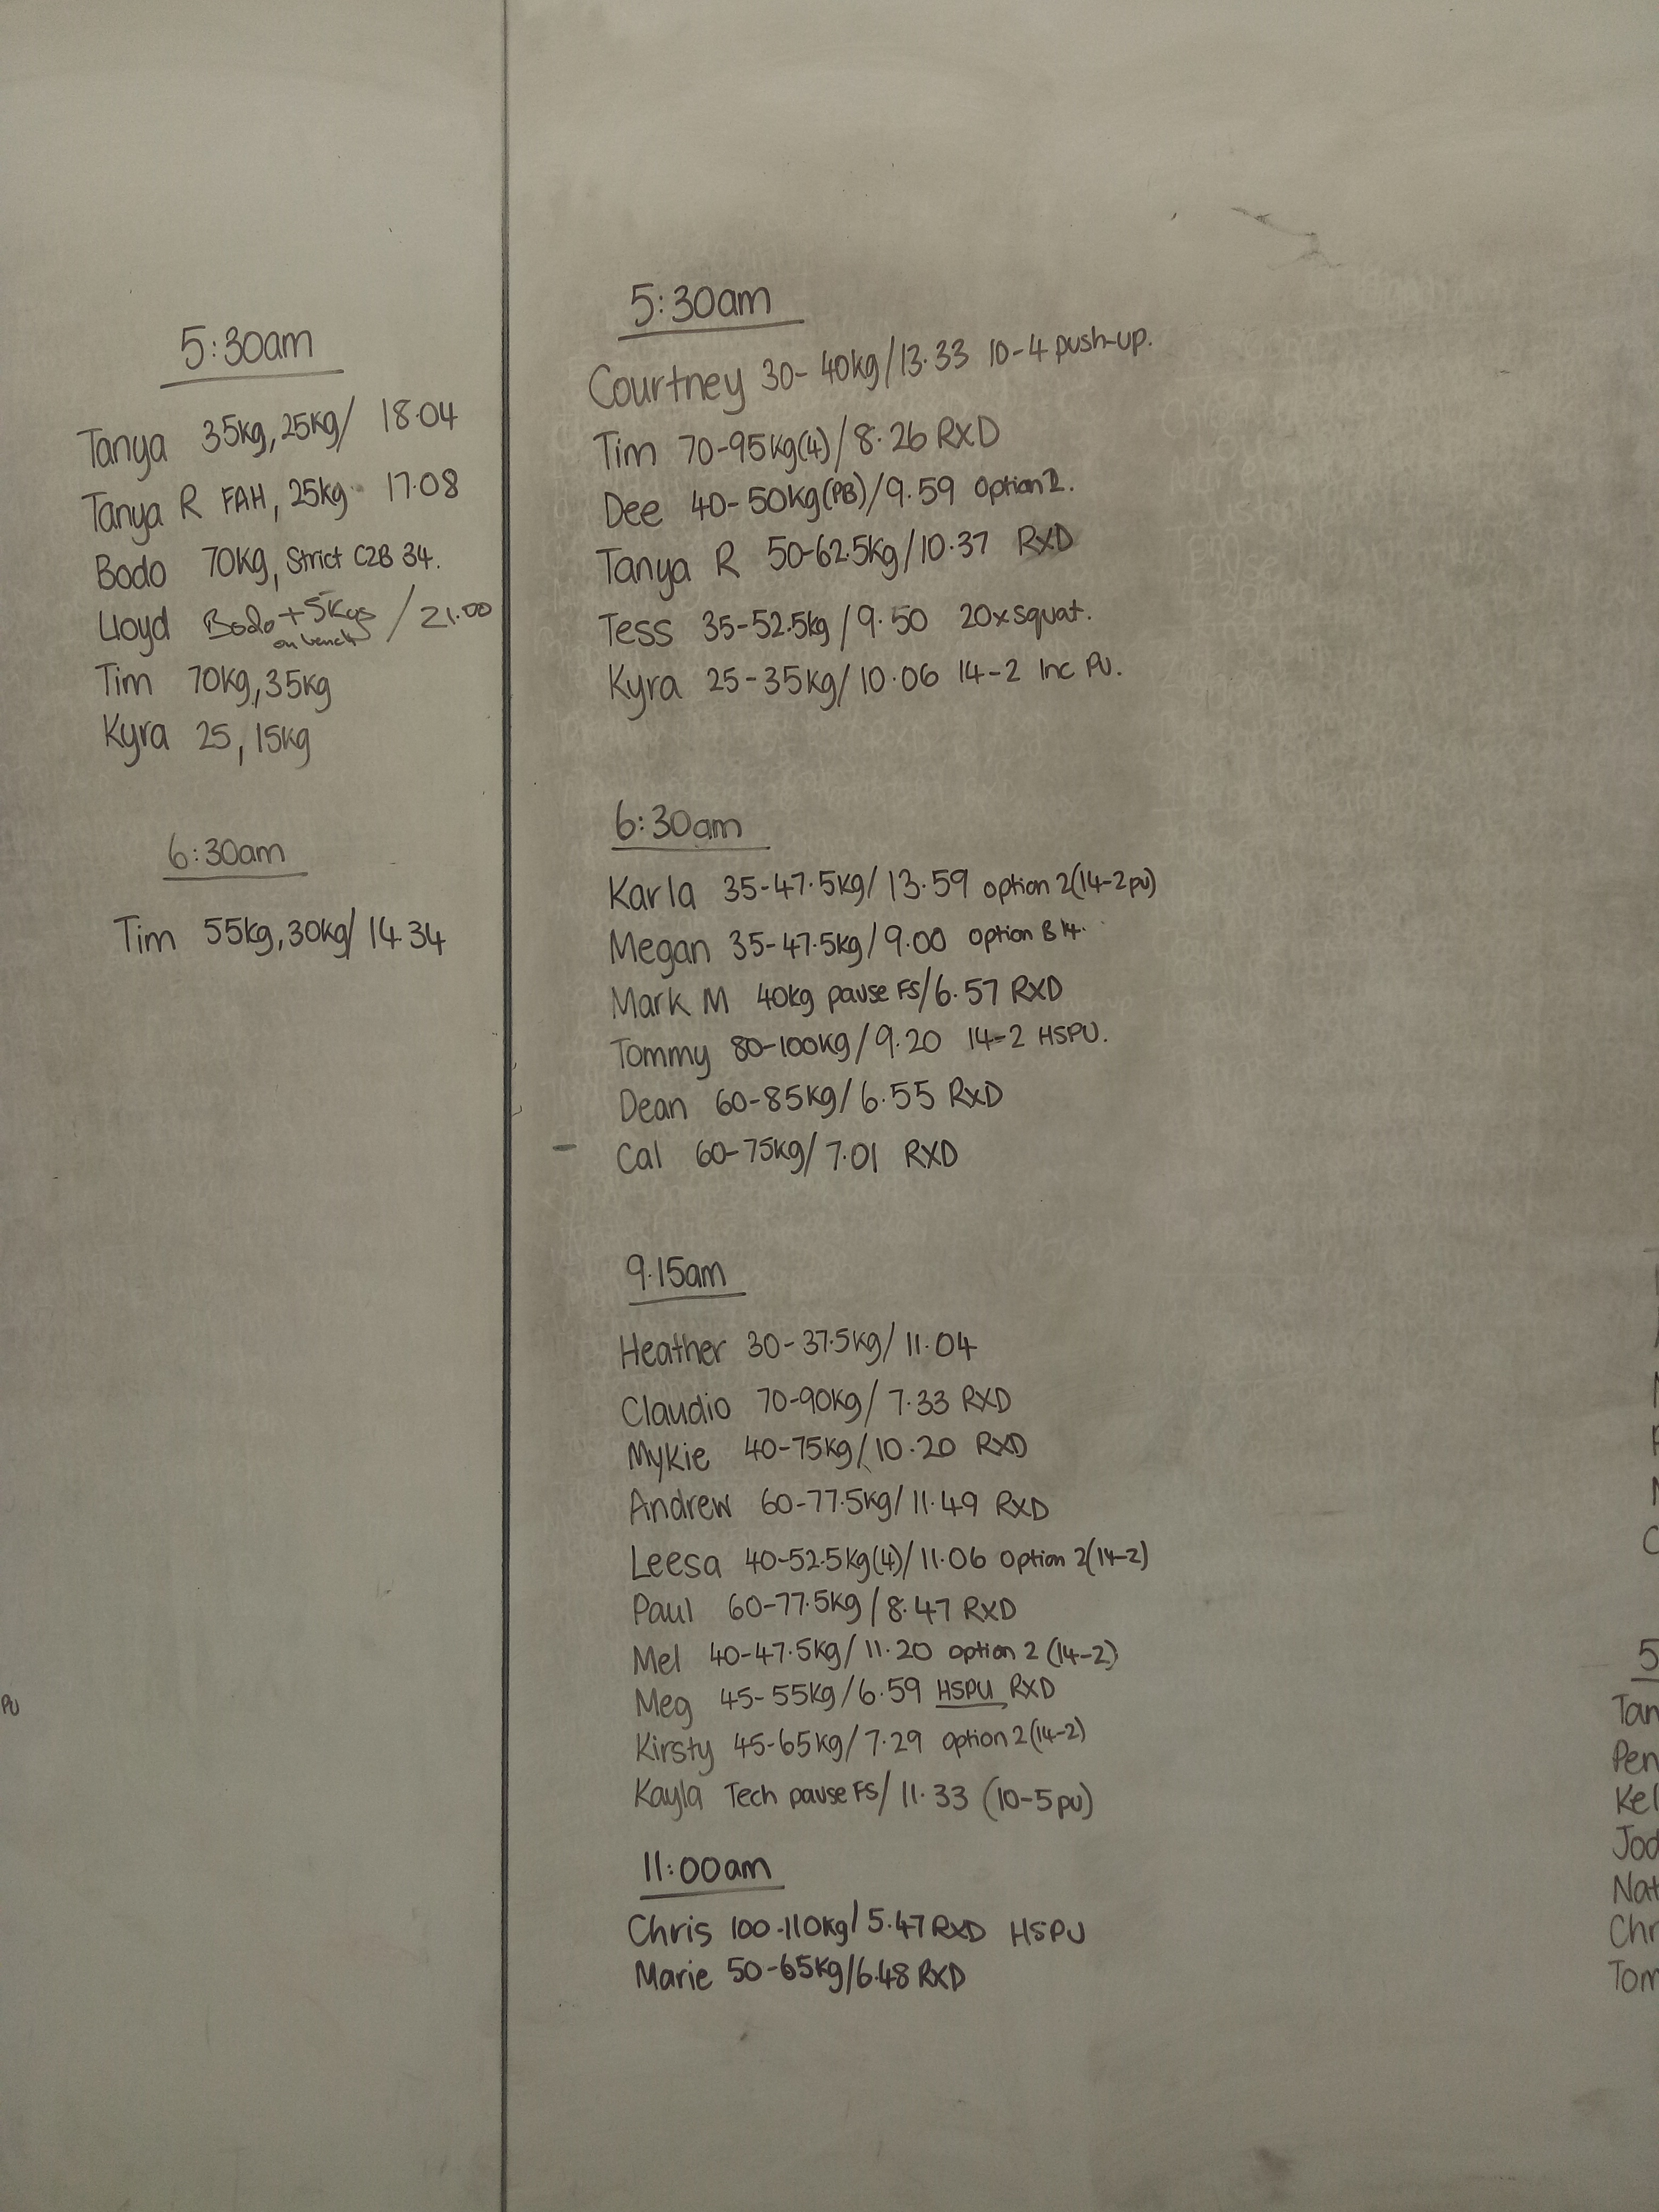 5:30am
Tanya 35kg, 25kg/ 18.04
Tanya R FAH, 25kg 17.08
Bodo 70kg, Strict C2B 34.
Lloyd Bodo +5kgs / 21.00
on bench
Tim 70kg, 35kg
Kyra 25, 15kg
6:30am
Tim 55kg, 30kg/ 14.34
PU
5:30am
Courtney 30-40kg/13.33 10-4 push-up.
Tim 70-95kg(4)/8.26 RXD
Dee 40-50kg(PB)/9.59 option 2.
Tanya R 50-62.5kg/10.37 RXD
Tess 35-52.5kg/9.50 20x squat.
Kyra 25-35kg/10.06 14-2 Inc PU.
6:30am
Karla 35-47.5kg/13.59 option 2(14-2pu)
Megan 35-47.5kg/9.00 option B 14.
Mark M 40kg pause FS/6.57 RXD
Tommy 80-100kg/9.20 14-2 HSPU.
Dean 60-85kg/6.55 RXD
Cal 60-75kg/7.01 RXD
9.15am
Heather 30-37.5kg/11.04
Claudio 70-90kg/7.33 RXD
Mykie 40-75kg/10.20 RXD
Andrew 60-77.5kg/11.49 RXD
Leesa 40-52.5kg(4)/11.06 option 2(14-2)
Paul 60-77.5kg/8.47 RXD
Mel 40-47.5kg/11.20 option 2 (14-2)
Meg 45-55kg/6.59 HSPU RXD
Kirsty 45-65kg/7.29 option 2(14-2)
Kayla Tech pause FS/11.33 (10-5pu)
11:00am
Chris 100-110kg/5.47 RXD HSPU
Marie 50-65kg/6.48 RXD
5
Tan
Pen
Kel
Jod
Nat
Chr
Tom